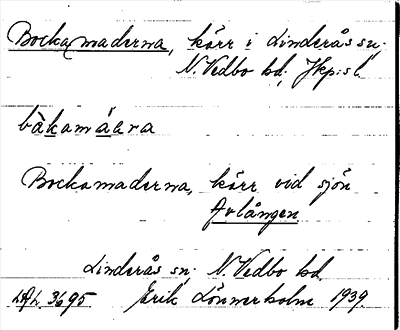 Bockamaderna, kärr i Linderås sn;
N. Vedbo hd; Jkp:s l
bàkamáɐra
Bockamaderna, kärr vid sjön
Avlången
Linderås sn; N. Vedbo hd.
3695 Erik Lönnerholm 1939